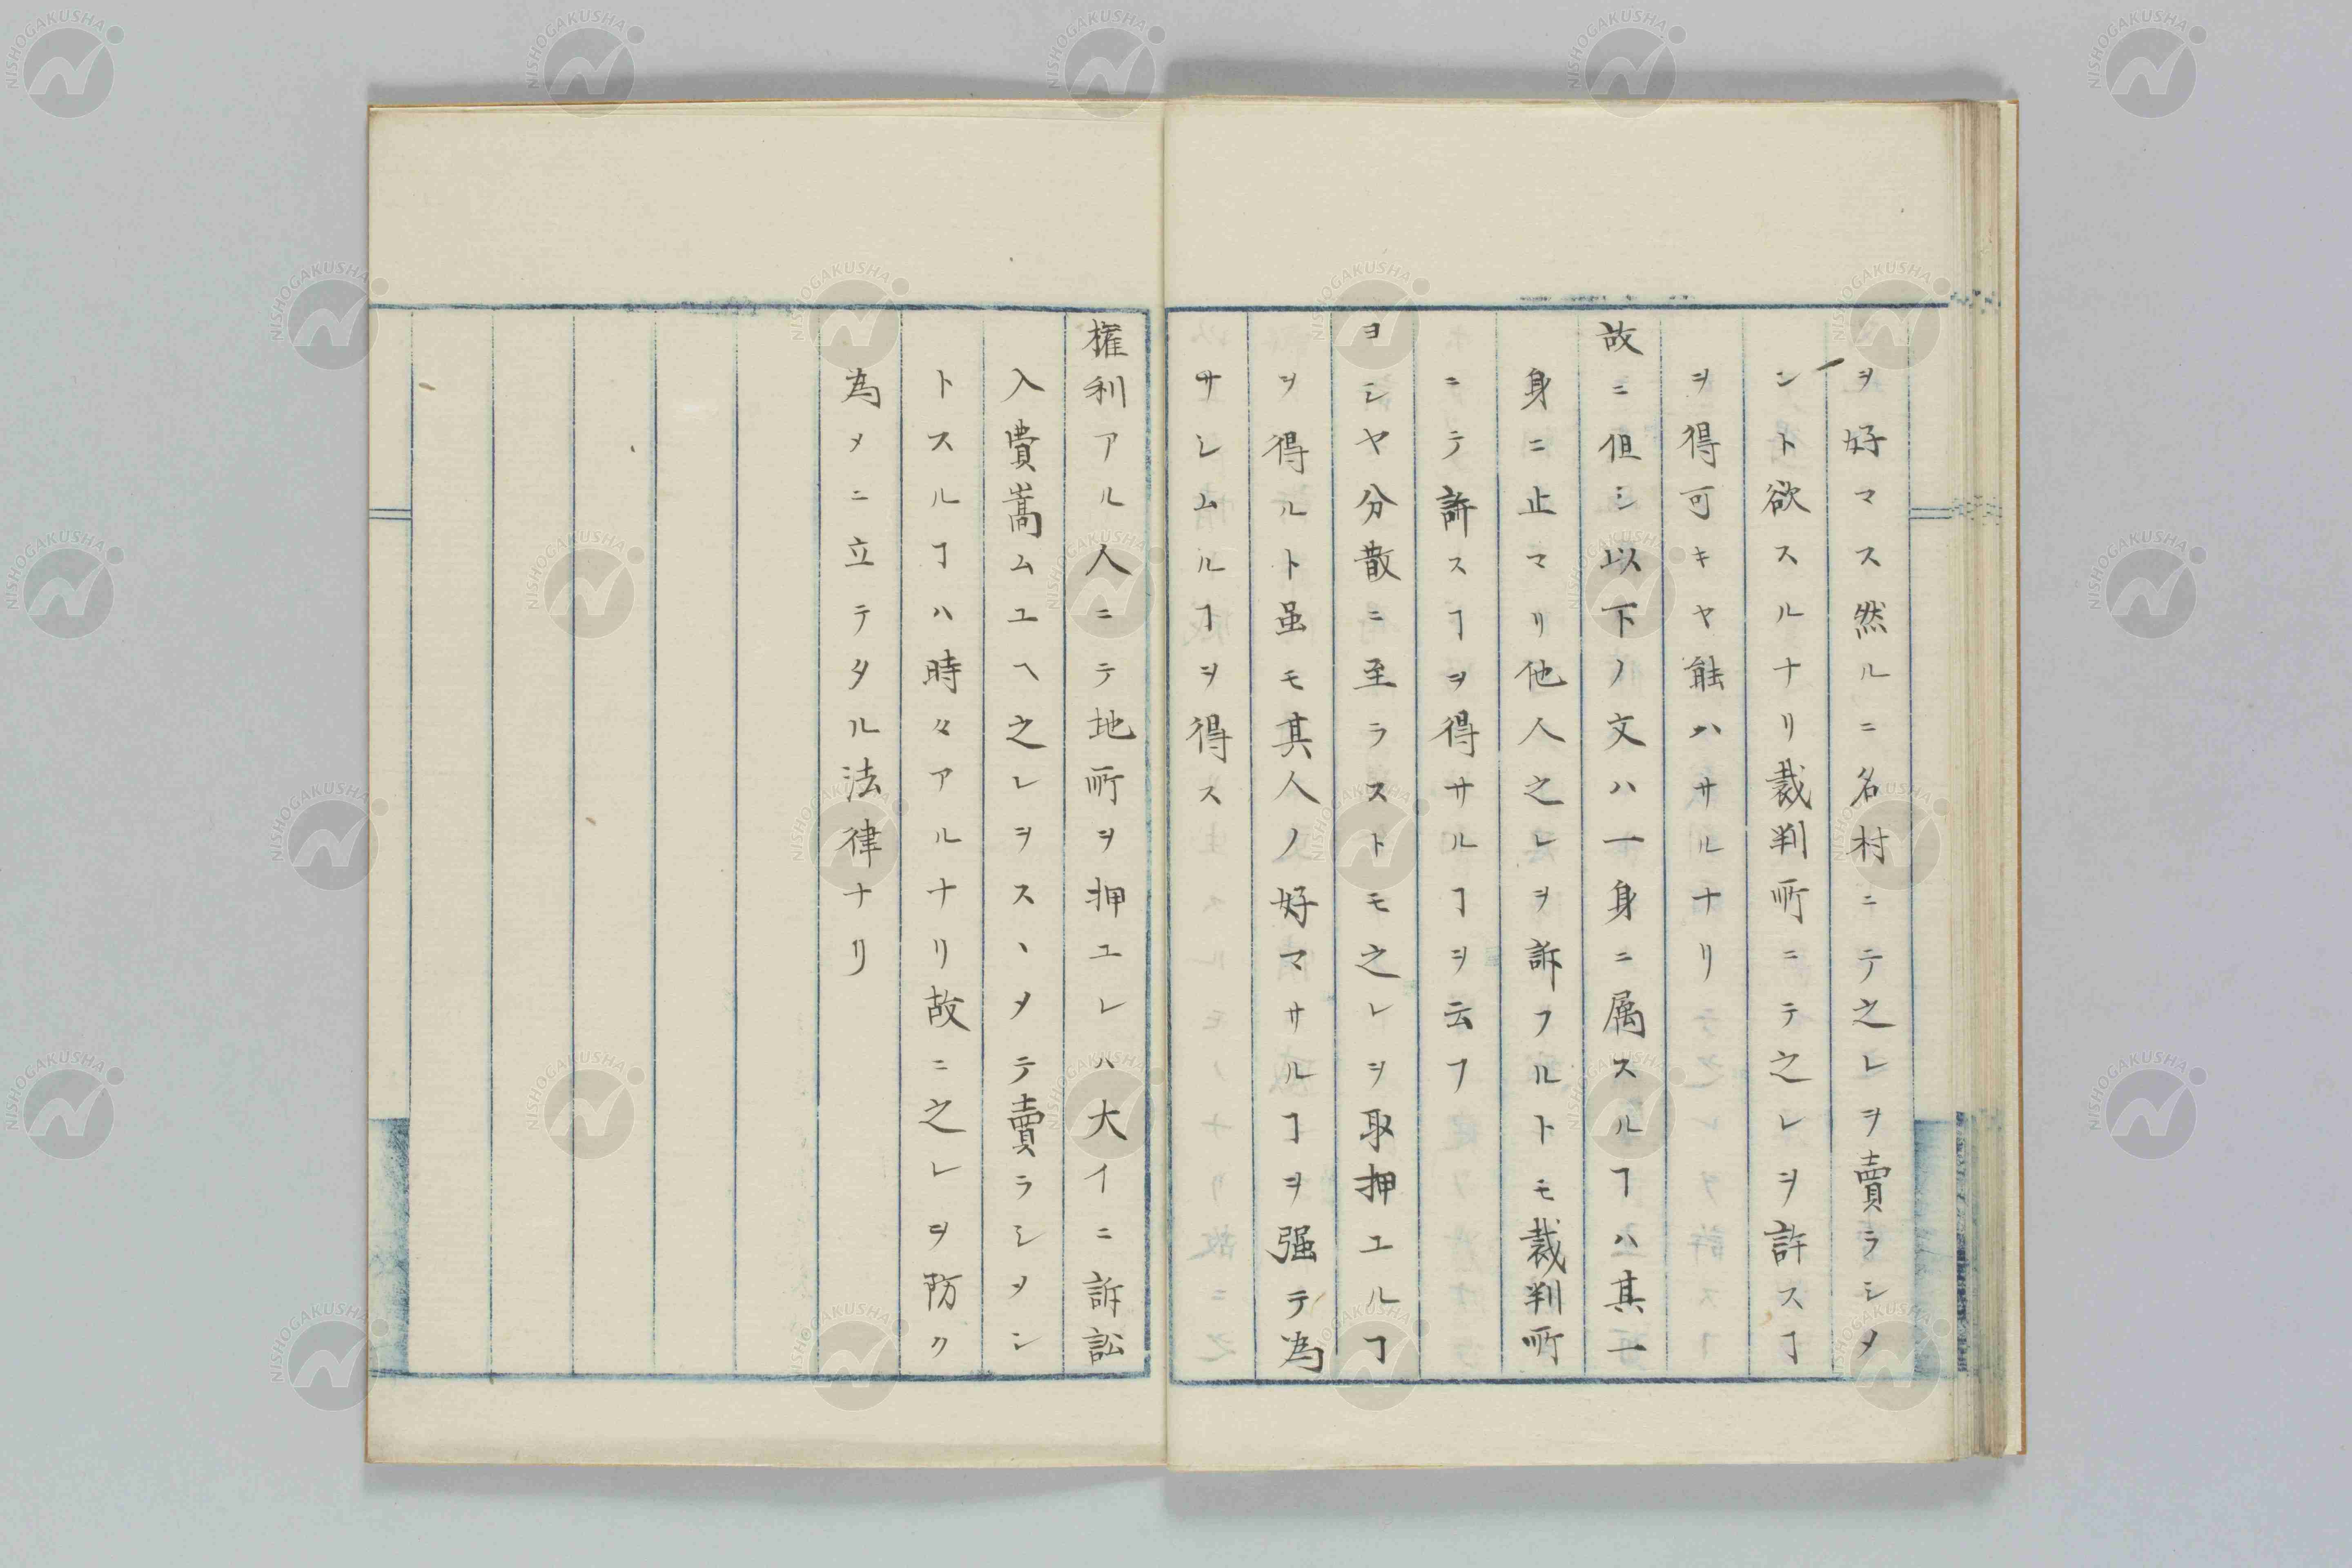 ヲ好マス然ルニ名村ニテ之レヲ賣ラシメ
ント欲スルナリ裁判所ニテ之レヲ許スヿ
ヲ得可キヤ能ハサルナリ
故ニ但シ以下ノ文ハ一身ニ属スルヿハ其一
身ニ止マリ他人之レヲ訴フルトモ裁判所
ニテ許スヿヲ得サルヿヲ云フ
ヨシヤ分散ニ至ラストモ之レヲ取押エルヿ
ヲ得ルト虽モ其人ノ好マサルヿヲ强テ為
サシムルヿヲ得ス
権利アル人ニテ地所ヲ押エレハ大イニ訴訟
入費嵩ムユヘ之レヲスヽメテ賣ラシメン
トスルヿハ時々アルナリ故ニ之レヲ防ク
為メニ立テタル法律ナリ
NISHOGAKUSHA